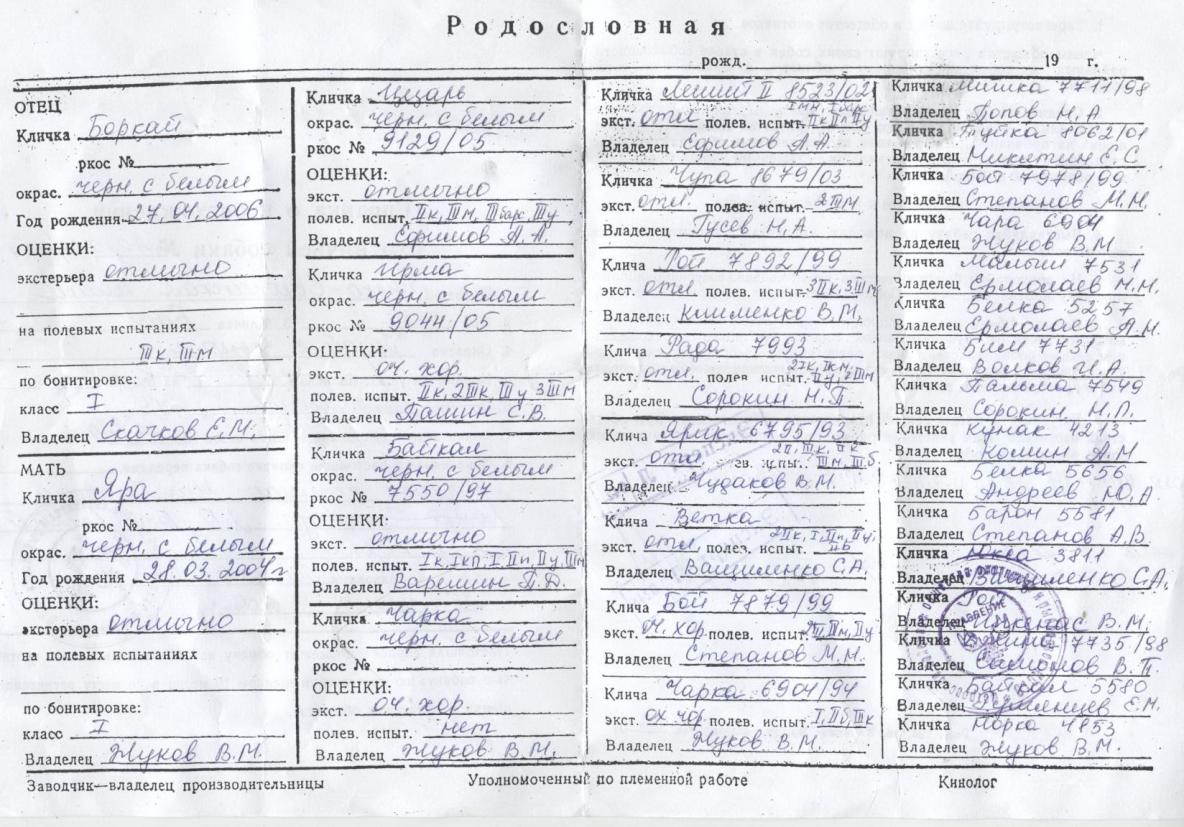 Родословная
рожд. 19 г.
ОТЕЦ
Кличка Боркай
ркос №
окрас. черн. с белым
Год рождения 27.04.2006
ОЦЕНКИ:
экстерьера отлично
на полевых испытаниях
IIк, IIIм
по бонитировке:
класс I
Владелец Скачков Е.М.
МАТЬ
Кличка Яра
ркос №
окрас. черн. с белым
Год рождения 28.03.2004г
ОЦЕНКИ:
экстерьера отлично
на полевых испытаниях
по бонитировке:
класс I
Владелец Жуков В.М.
Кличка Цезарь
окрас. черн. с белым
ркос № 9129/05
ОЦЕНКИ:
экст. отлично
полев. испыт. IIк, IIIм, IIIбарс, IIIу
Владелец Ефимов А.А
Кличка Ирма
окрас. черн. с белым
ркос № 9044/05
ОЦЕНКИ:
экст. оч. хор.
полев. испыт. IIк, 2IIIк, IIIу 3IIIм
Владелец Пашин С.В.
Кличка Байкал
окрас. черн. с белым
ркос № 7550/97
ОЦЕНКИ:
экст. отлично
полев. испыт. Iк, Iкп, IIIп, IIу, IIIм
Владелец Варешин П.Д.
Кличка Чарка
окрас. черн. с белым
ркос №
ОЦЕНКИ:
экст. оч. хор.
полев. испыт. нет
Владелец Жуков В.М.
Кличка Леший II 8523/02
экст. отл полев. испыт.
Владелец Ефимов А.А.
Кличка Чупа 8679/03
экст. отл. полев. испыт. 2IIIм
Владелец Гусев Н.А.
Клича Гой 7892/99
экст. отл. полев. испыт. 3IIк, 3IIIм
Владелец Клименко В.М.
Клича Рада 7993
экст. отл. полев испыт.
Владелец Сорокин Н.П.
Клича Ярик 6795/93
экст. отл
Владелец Чудаков В.М.
Клича Ветка
экст. отл. полев. испыт.
Владелец Ващиленко С.А.
Клича Бой 7879/99
экст. оч. хор. полев. испыт.
Владелец Степанов М.М.
Клича Чарка 6904/94
экст. ох чор. полев. испыт. I, IIб, IIIк
Владелец Жуков В.М.
Кличка Милка 7711/98
Владелец Попов Н.А
Кличка Туйка 8062/01
Владелец Микитин Е.С
Кличка Бой 7978/99
Владелец Степанов М.М.
Кличка Чара 6904
Владелец Жуков В.М.
Кличка Малыш 7531
Владелец Ермолаев М.М,
Кличка Белка 5257
Владелец Ермолаев А.Н.
Кличка Бим 7731
Владелец Волков И.А.
Кличка Пальма 7549
Владелец Сорокин, Н.П.
Кличка Кунак 4213
Владелец Комин А.М
Кличка Белка 5656
Владелец Андреев Ю.А
Кличка Барон 5581
Владелец Степанов А.В.
Кличка 3811
Владелец Ващиленко С.А.
Кличка Гой
Владелец В.М.
Кличка 7735/98
Владелец В.П.
Кличка Байкал 5580
Владелец Е.М.
Кличка Норка 4853
Владелец Жуков В.М.
Заводчик—владелец производительницы
Уполномоченный по племенной работе
Кинолог